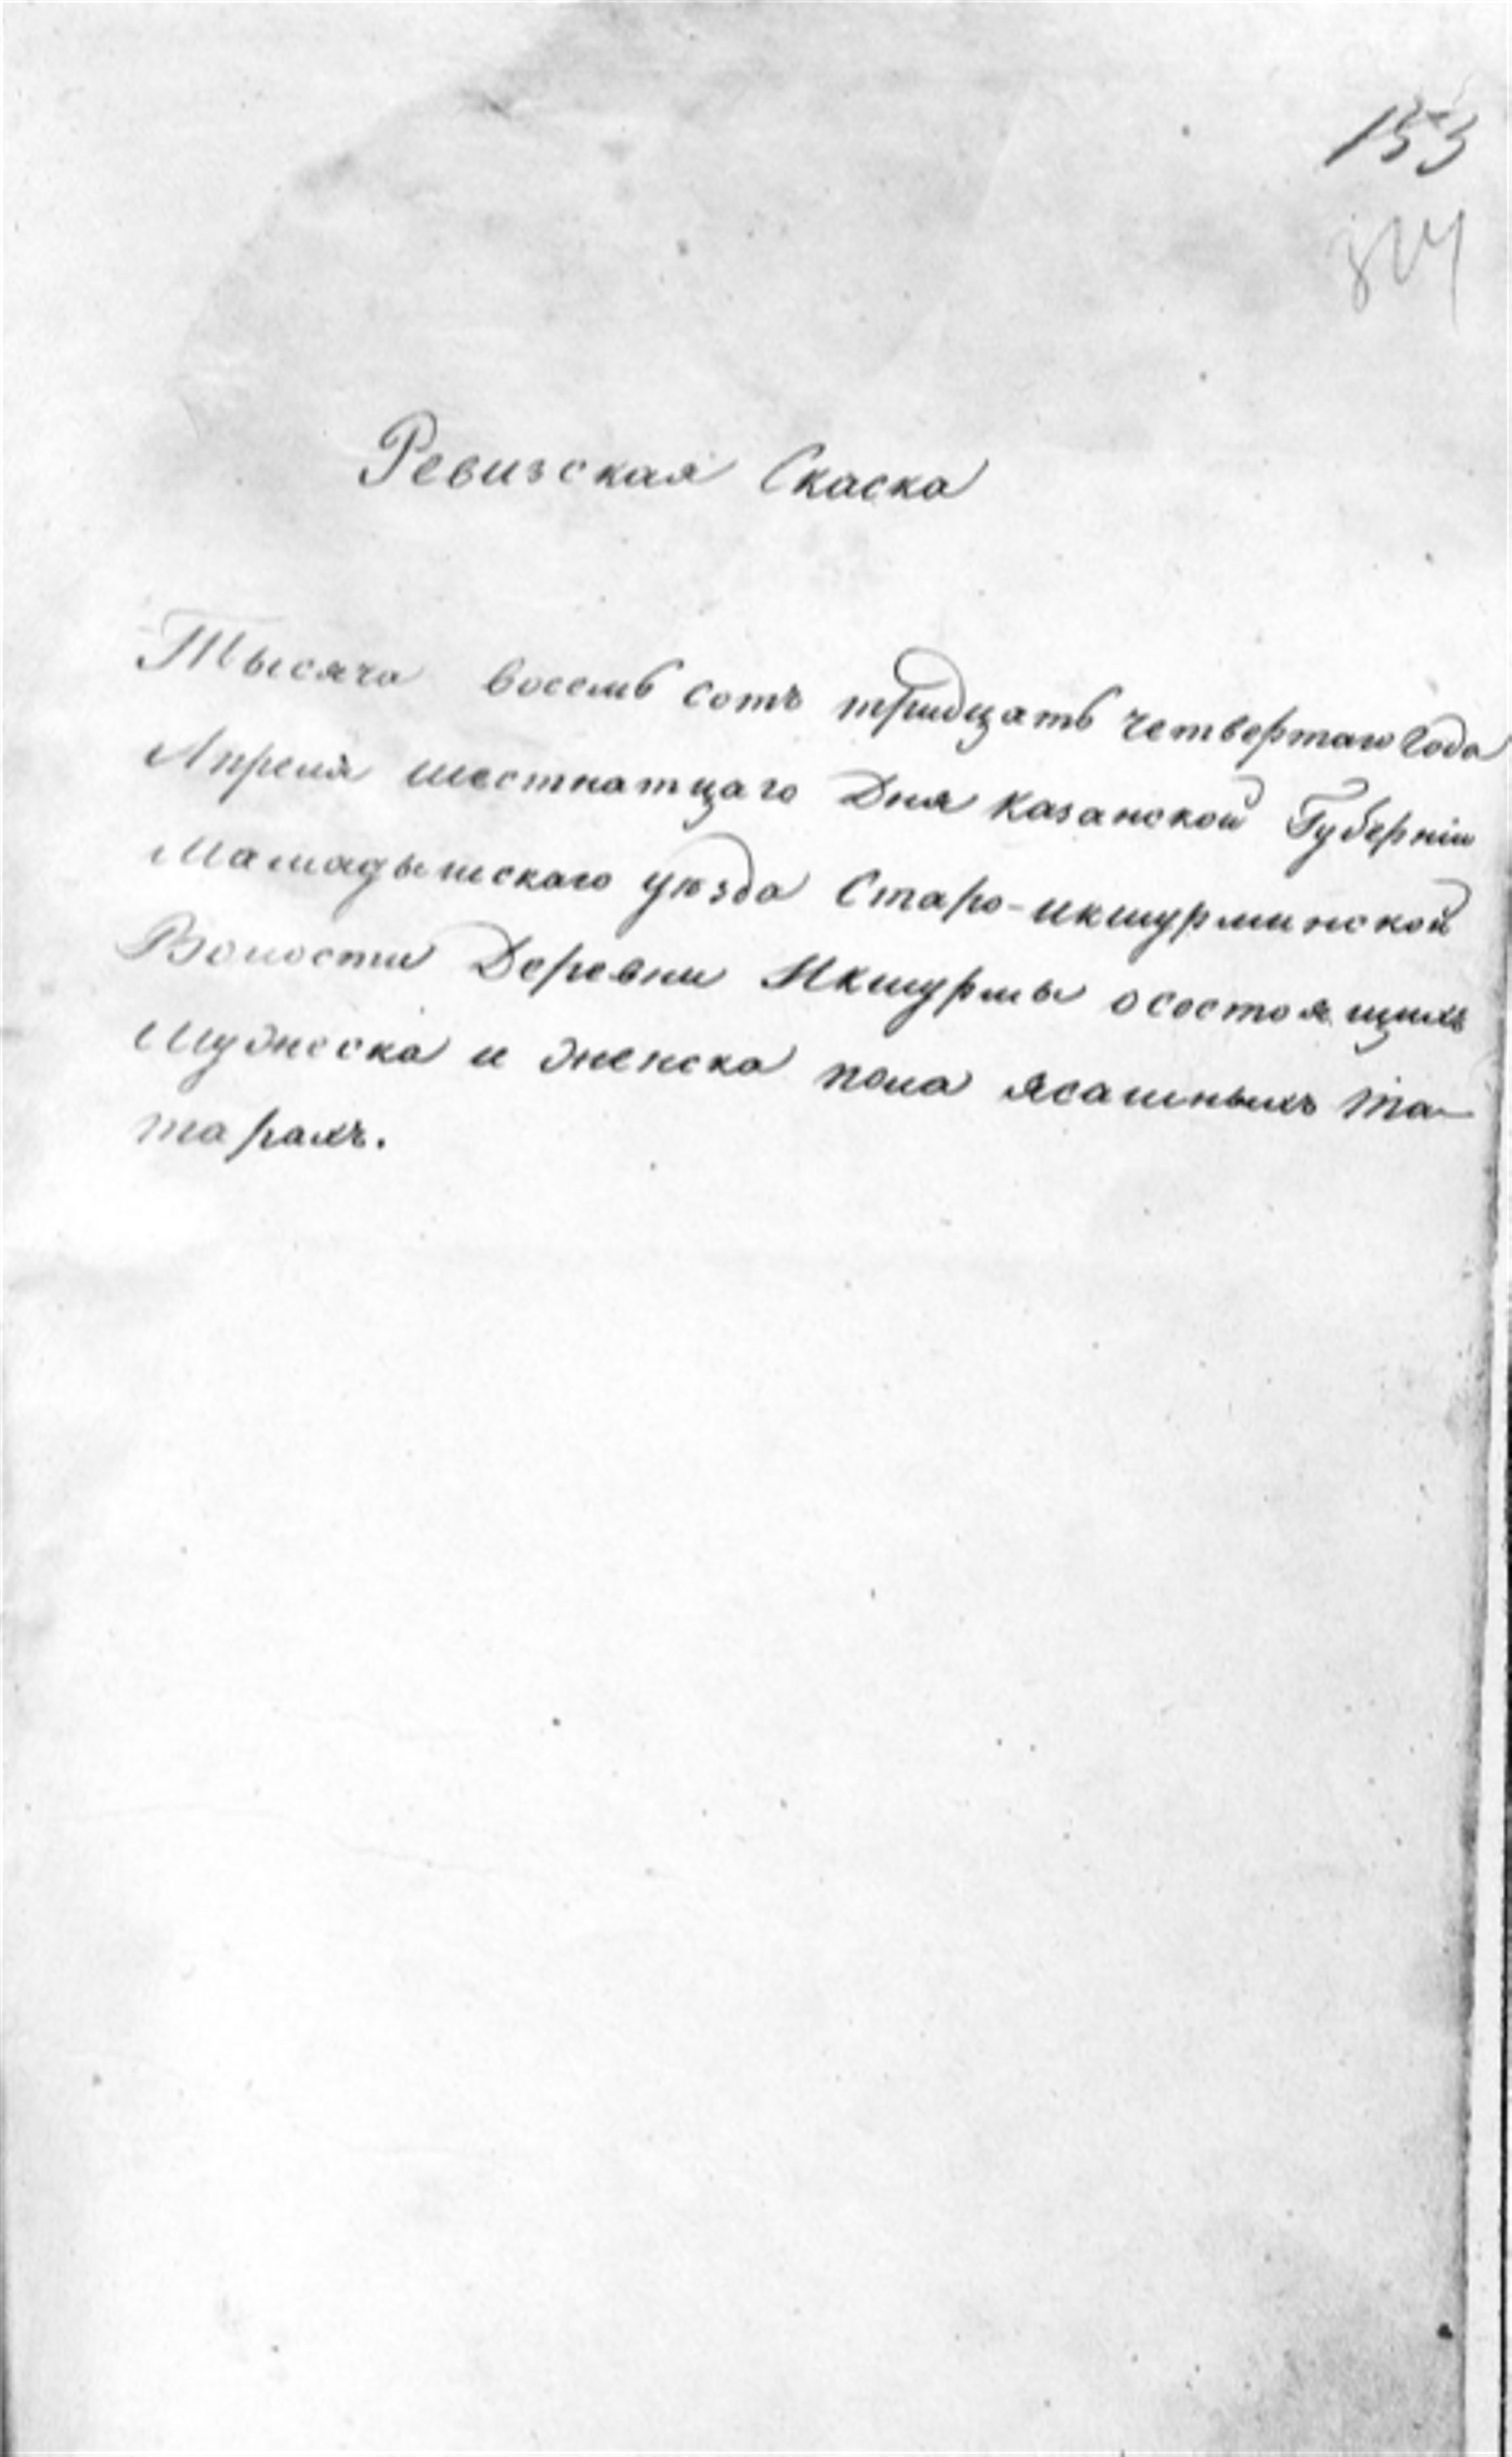 153
314
Ревизская Скаска
Тысяча восемь сотъ тридцать четвертаго Года
Апреля шестнатцаго Дня Казанской Губерніи
Мамадышскаго уѣзда Старо-икшурминской
Волости Деревни Икшурмы о состоящихъ
Мужеска и женска пола ясашныхъ та-
тарахъ.